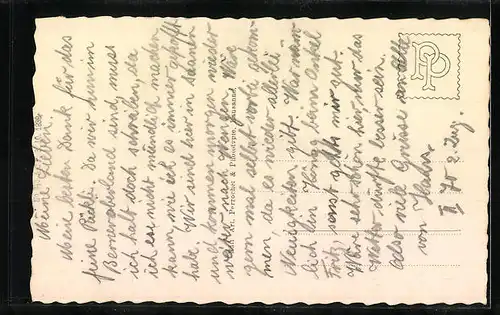 Meine Lieben.
Meine besten Dank für das
feine Päckli. Da wir nun im
Berneroberland sind, muss
ich halt doch schreiben, da
ich es nicht mündlich machen
kann, wie ich es immer gehofft
habe. Wir sind hier in Saanen
und kommen morgen wieder
nach Wengen. Wäre
gern mal selbst vorbei gekom-
men, da es wieder allerlei
Neuigkeiten gibt. War näm-
lich bim König beim Onkel
Fritz, sonst geht's mir gut.
Wäre sehr schön hier, nur das
Wetter dürfte besser sein.
Also viele Grüsse an alle
von
II 70 2 Zug.
Perrochet & Phototypie, Lausanne
PP